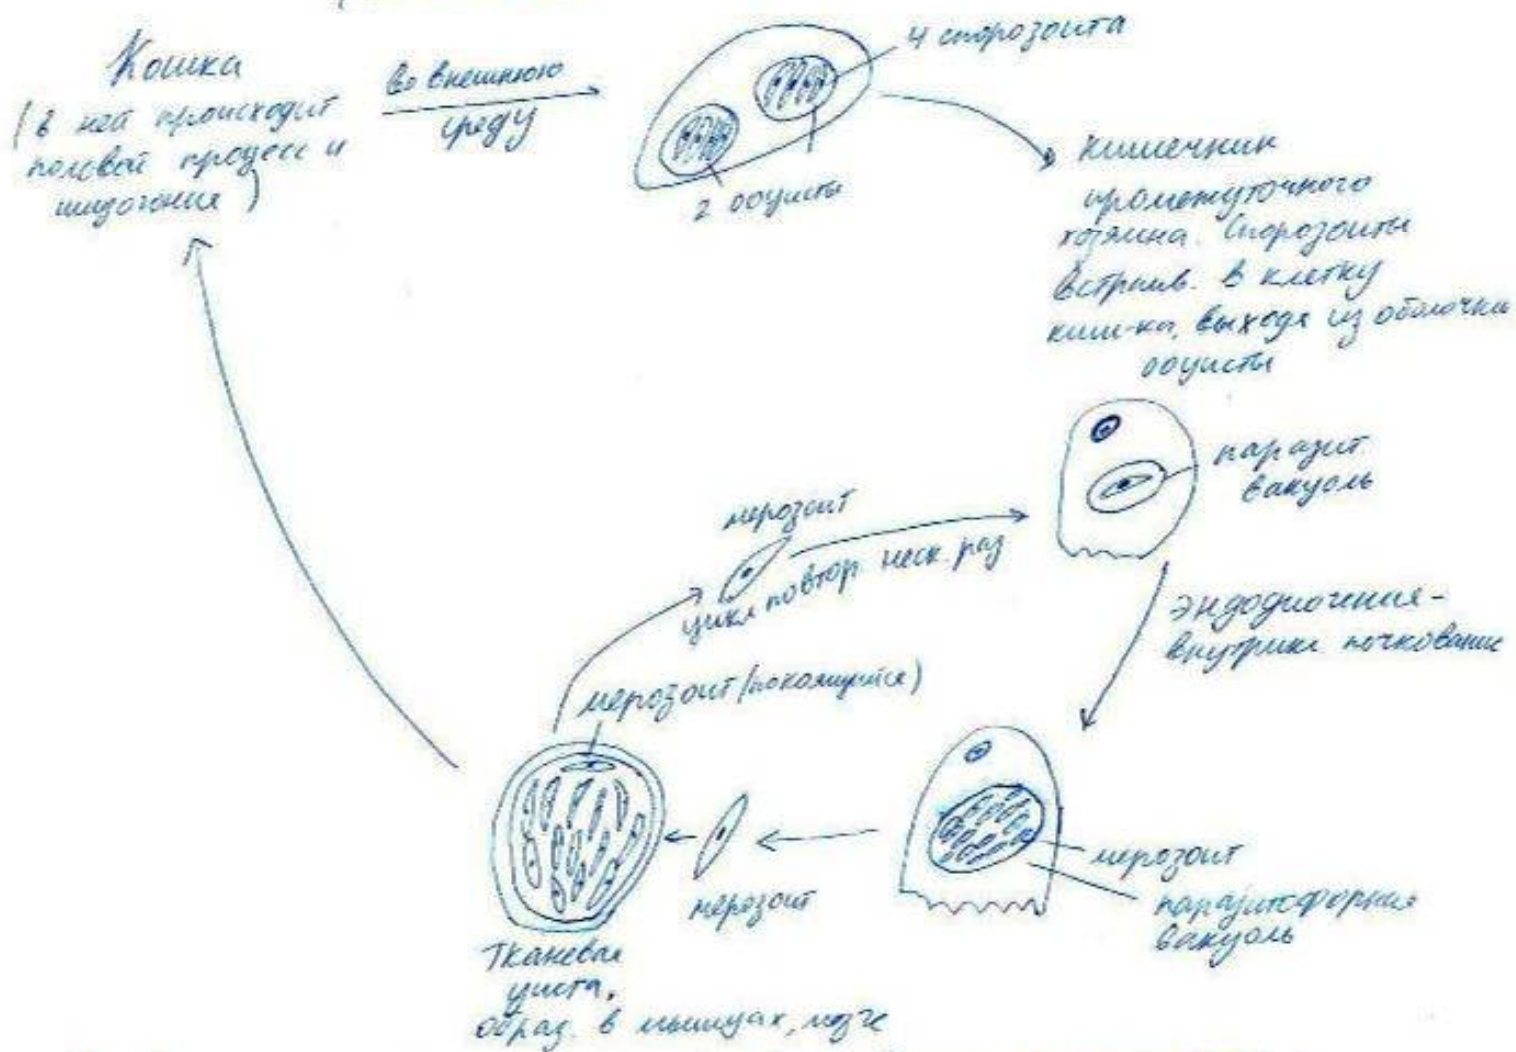 Кошка
(в ней происходит
половой процесс и
шизогония)
во внешнюю
среду
4 спорозоита
2 ооцисты
кишечник
промежуточного
хозяина. Спорозоиты
встраив. в клетку
киш-ка, выходя из оболочки
ооцисты
паразит.
вакуоль
мерозоит
цикл повтор. неск. раз
эндодиогения -
внутрикл почкование
мерозоит (покоящийся)
мерозоит
паразитофорная
вакуоль
мерозоит
Тканевая
циста,
образ. в мышцах, мозге